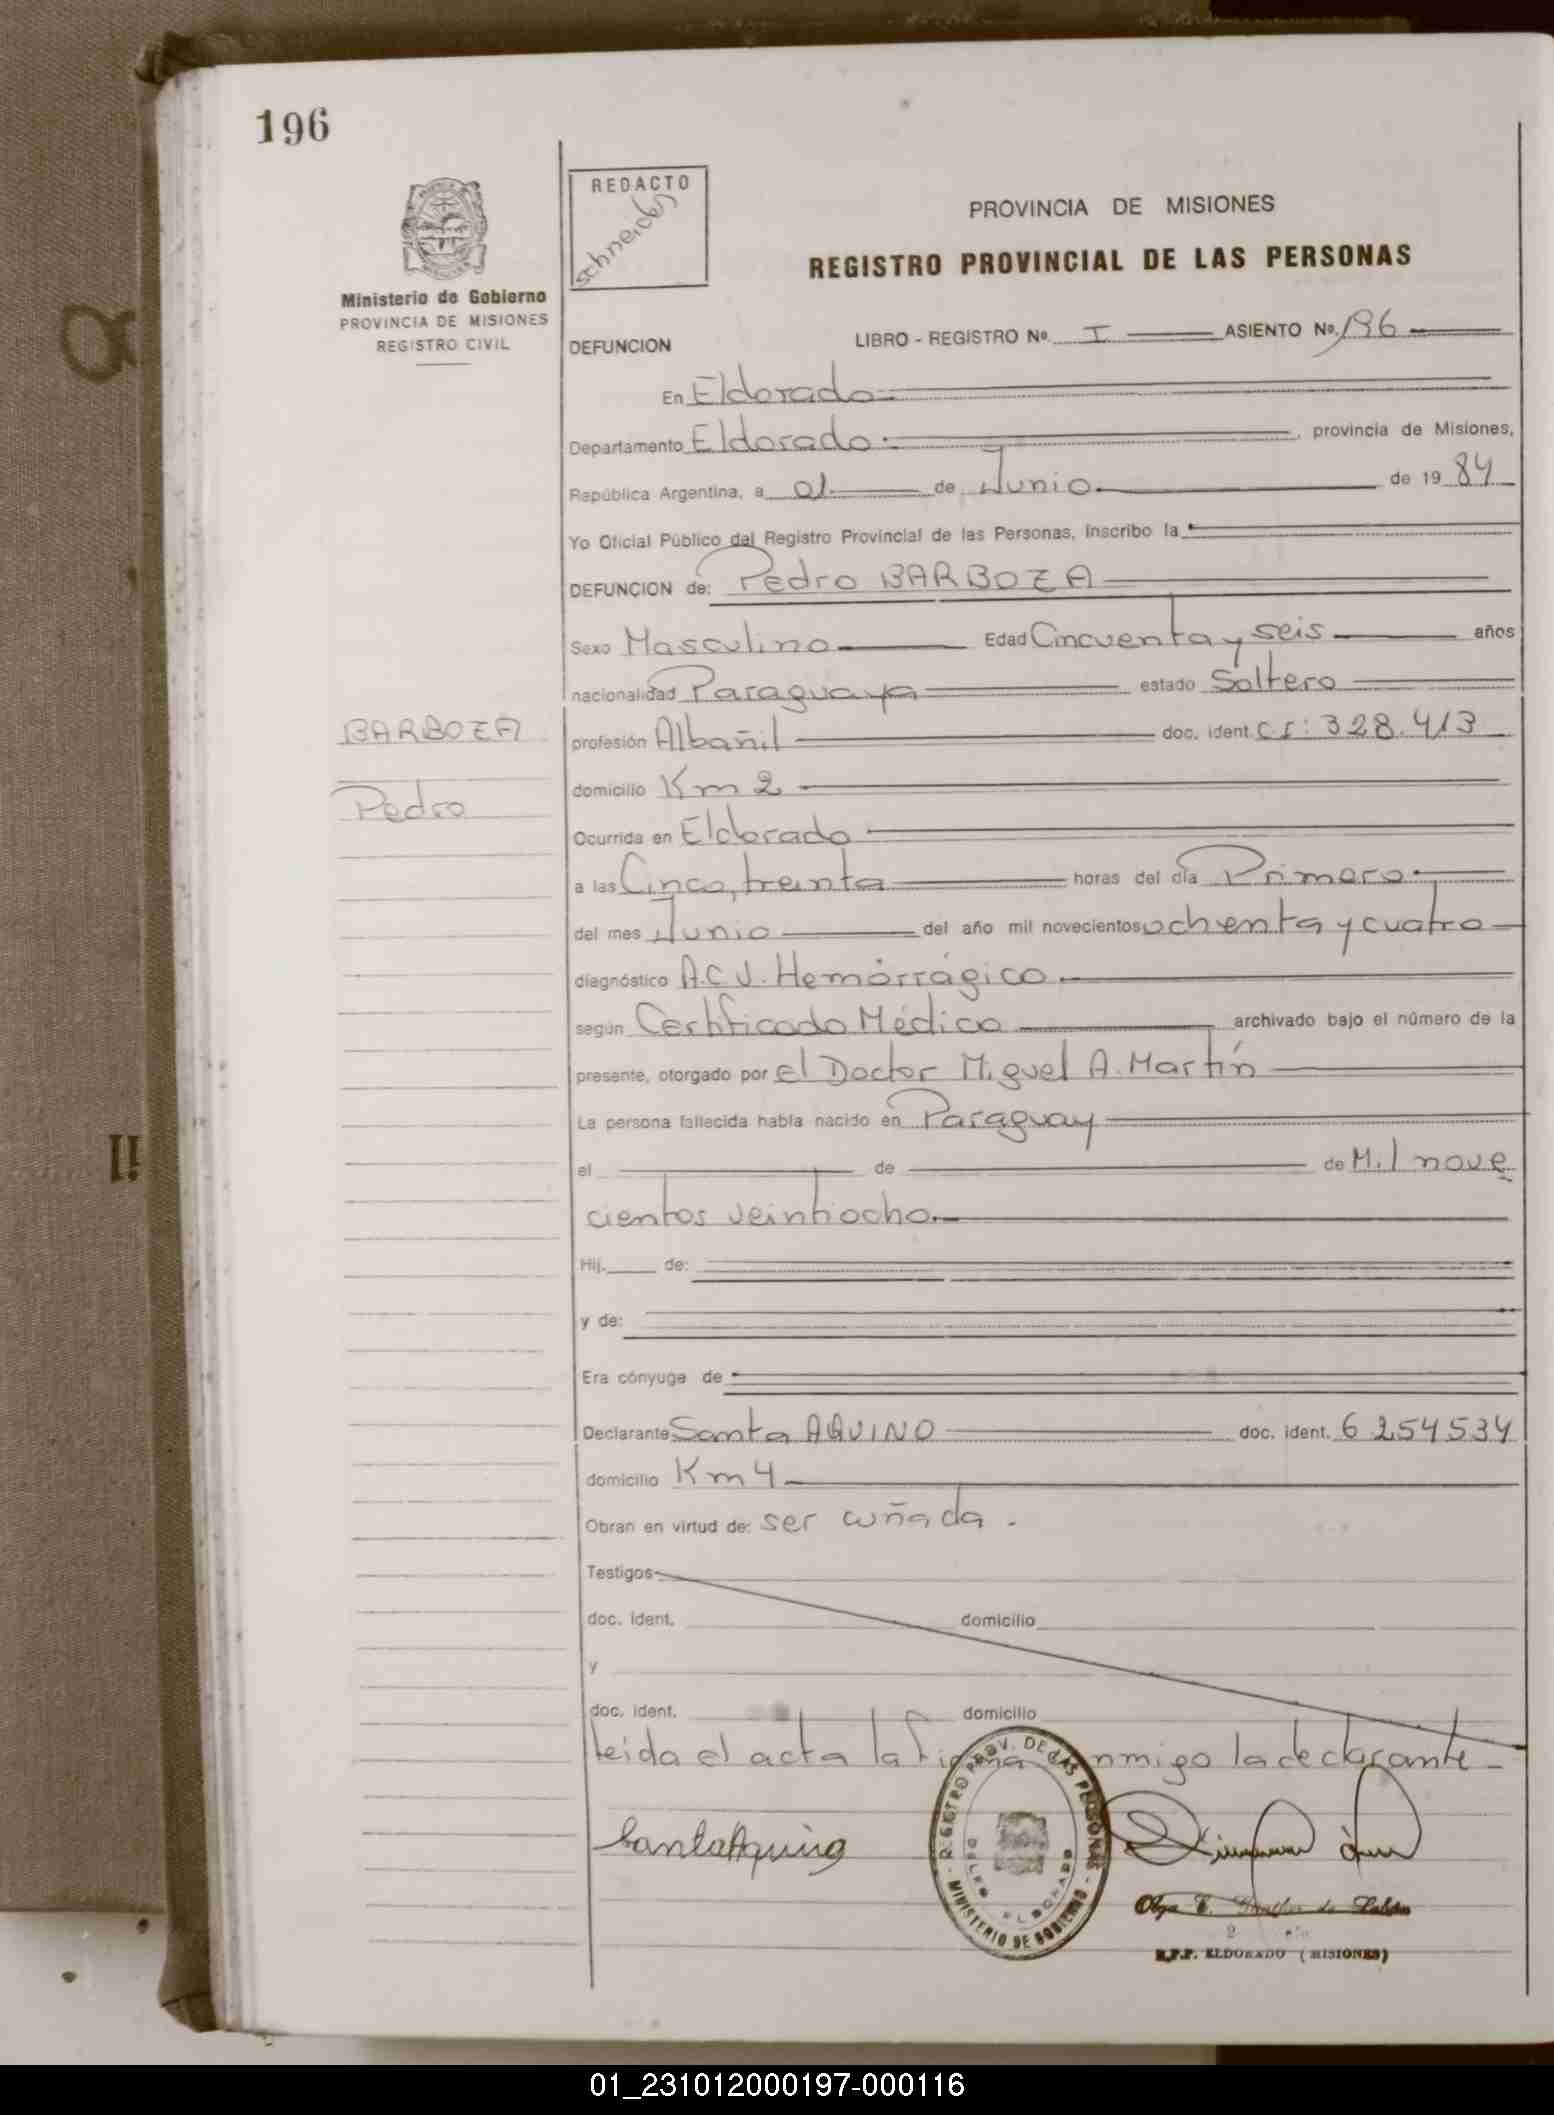 196
REDACTO
schneider
Ministerio de Gobierno
PROVINCIA DE MISIONES
REGISTRO CIVIL
PROVINCIA DE MISIONES
REGISTRO PROVINCIAL DE LAS PERSONAS
DEFUNCION LIBRO - REGISTRO Nº. I ASIENTO Nº. 196
En Eldorado
Departamento Eldorado , provincia de Misiones,
República Argentina, a 01 de Junio de 19 84
Yo Oficial Público del Registro Provincial de las Personas, inscribo la
DEFUNCION de: Pedro BARBOZA
Sexo Masculino Edad Cincuenta y seis años
nacionalidad Paraguaya estado Soltero
BARBOZA
Pedro
profesión Albañil doc. ident. C.I: 328.413
domicilio Km 2
Ocurrida en Eldorado
a las Cinco, treinta horas del día Primero
del mes Junio del año mil novecientos ochenta y cuatro
diagnóstico A.C.V. Hemórrágico
según Certificado Médico archivado bajo el número de la
presente, otorgado por el Doctor Miguel A. Martín
La persona fallecida había nacido en Paraguay
el de de Mil nove
cientos veintiocho.
Hij. de:
y de:
Era cónyuge de
Declarante Santa AQUINO doc. ident. 6254534
domicilio Km 4
Obran en virtud de: ser cuñada.
Testigos
doc. ident. domicilio
y
doc. ident. domicilio
leida el acta la firma conmigo la declarante
Santa Aquino
REGISTRO PROV. DE LAS PERSONAS
MINISTERIO DE GOBIERNO
DELEG ELDORADO
Olga
R.P.P. ELDORADO (MISIONES)
01_231012000197-000116